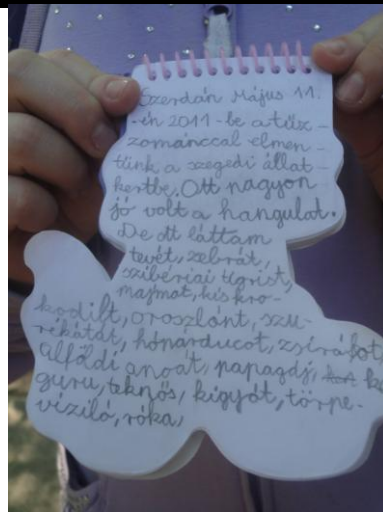 Szerdán Május 11.
-én 2011-be a tűz-
zománccal elmen-
tünk a szegedi állat
kertbe. Ott nagyon
jó volt a hangulat.
De ott láttam
tevét, zebrát,
szibériai tigrist,
majmot, kis kro-
kodilt, oroszlánt, szu-
rikátát, hónarducot, zsiráfot
alföldi anoát, papagáj, k
guru, teknős, kígyót, törpe-
víziló, róka,